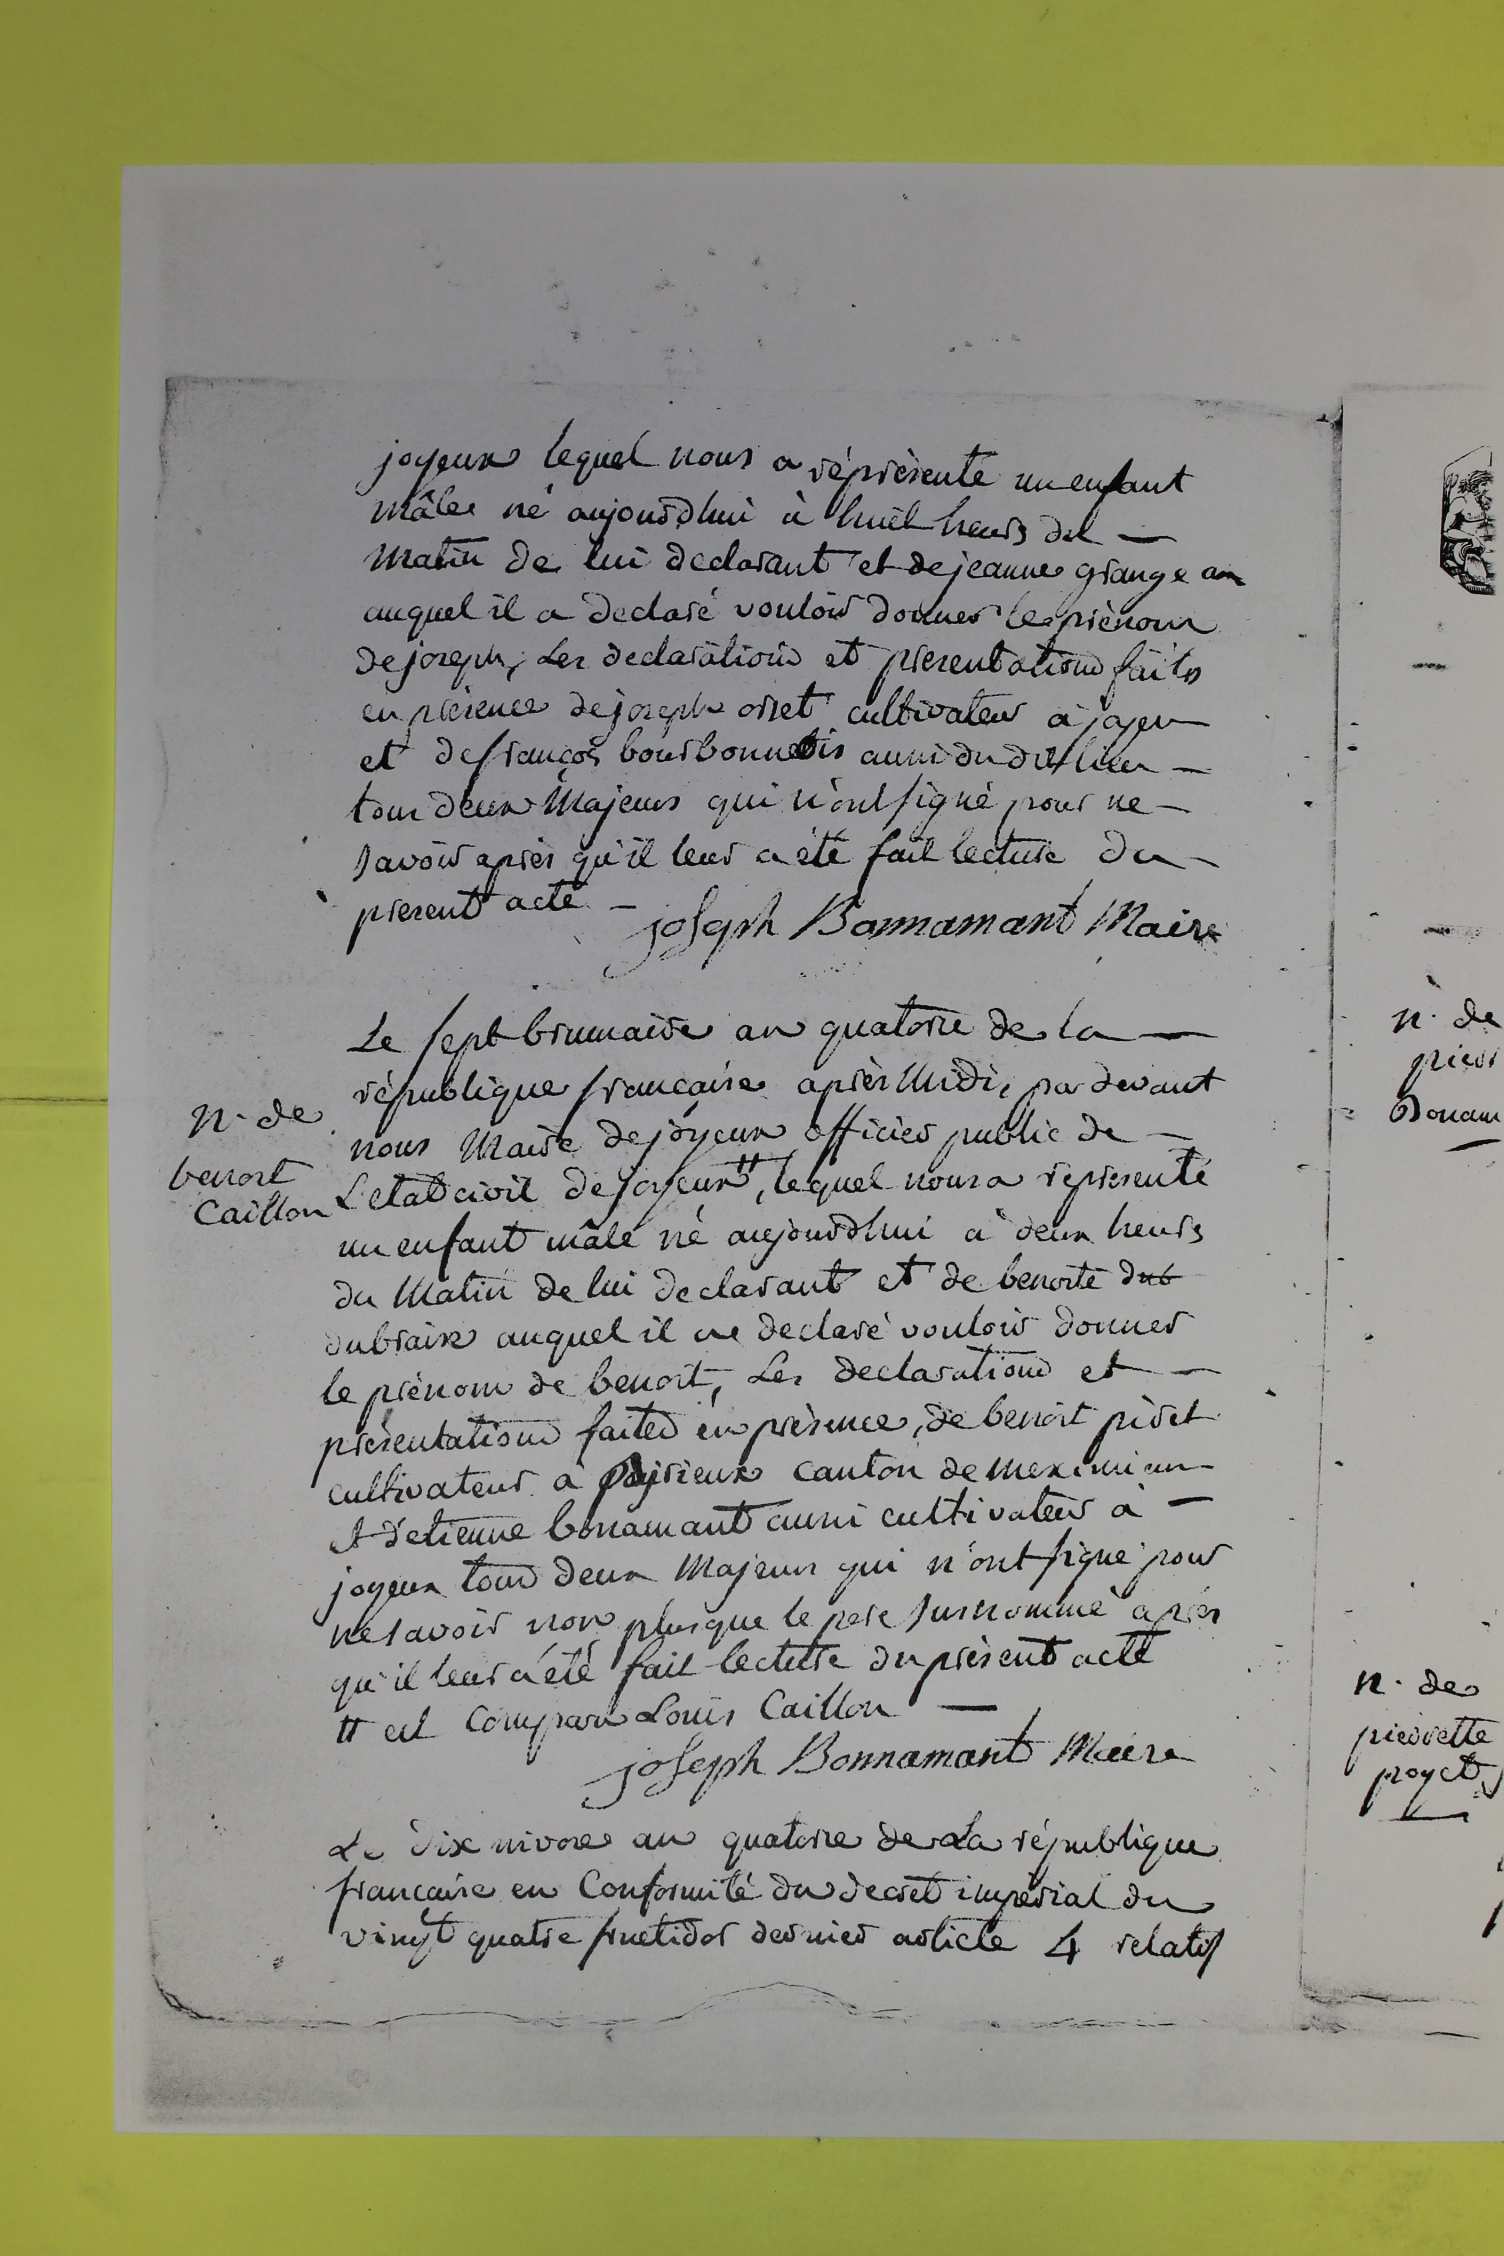 joyeux lequel nous a réprèsenté un enfant
mâle né aujourdhui à huit heurs du —
Matin de lui declarant et de jeanne grange
auquel il a declaré vouloir donner le prènom
de joseph, Les declaration et presentation faits
en prèsence de joseph orset cultivateur à joyeu
et de françois bourbonnois aussi du dit lieu —
tous deux Majeurs qui n'ont signé pour ne —
savoir après qu'il leur a été fait lecture du —
present acte — joseph Bonnamant Maire
Le sept brumaire an quatorze de la —
république française après Midi, par devant
nous Maire de joyeux officier public de —
L'etat civil de joyeux ", lequel nous a representé
un enfant mâle né aujourdhui à deux heurs
du Matin de lui declarant et de benoite dub
dubraix auquel il a declaré vouloir donner
le prènom de benoit, Les declaration et —
prèsentation faites en prèsence, de benoit piret
cultivateur à pajrieux canton de meximieu
et d'etienne bonamant aussi cultivateur à —
joyeux tous deux Majeurs qui n'ont signé pour
ne savoir non plus que le pere susnommé après
qu'il leur a été fait lecture du prèsent acte
" est comparu Louis Caillon —
joseph Bonnamant Maire
Le dix nivose an quatorze de La république
francaise en Conformité du decret impérial du
vingt quatre fructidor dernier article 4 relatif
n. de
benoit
Caillon
n. de
pierr
Bonam
n. de
pierrette
proyet